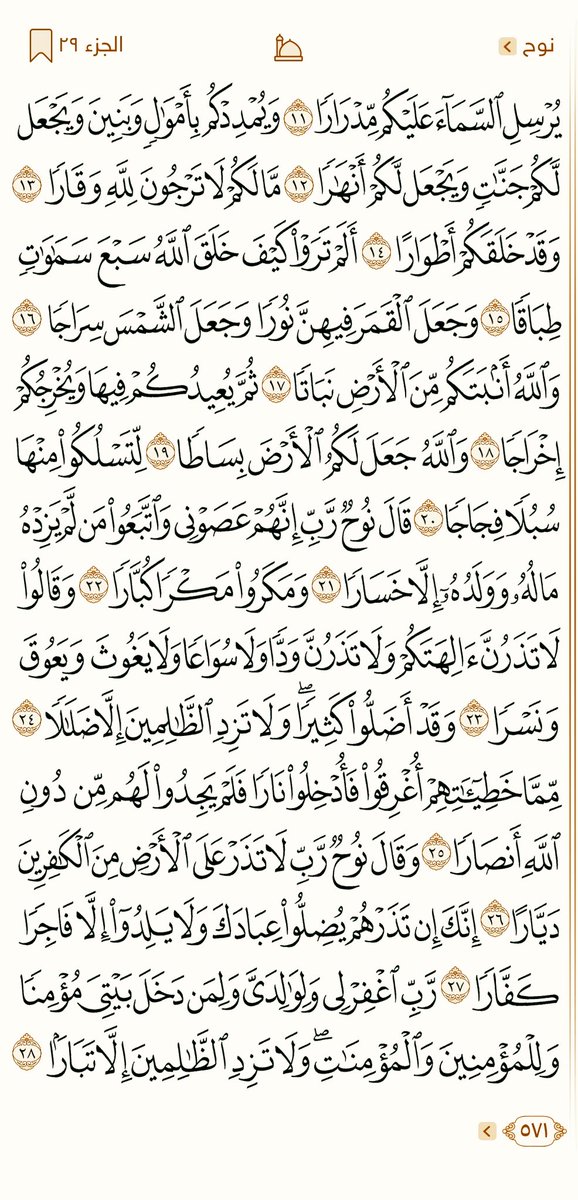 نوح
الجزء ٢٩
يُرْسِلِ ٱلسَّمَآءَ عَلَيْكُم مِّدْرَارًا ١١ وَيُمْدِدْكُم بِأَمْوَٰلٍ وَبَنِينَ وَيَجْعَل
لَّكُمْ جَنَّٰتٍ وَيَجْعَل لَّكُمْ أَنْهَٰرًا ١٢ مَّا لَكُمْ لَا تَرْجُونَ لِلَّهِ وَقَارًا ١٣
وَقَدْ خَلَقَكُمْ أَطْوَارًا ١٤ أَلَمْ تَرَوْا۟ كَيْفَ خَلَقَ ٱللَّهُ سَبْعَ سَمَٰوَٰتٍ
طِبَاقًا ١٥ وَجَعَلَ ٱلْقَمَرَ فِيهِنَّ نُورًا وَجَعَلَ ٱلشَّمْسَ سِرَاجًا ١٦
وَٱللَّهُ أَنۢبَتَكُم مِّنَ ٱلْأَرْضِ نَبَاتًا ١٧ ثُمَّ يُعِيدُكُمْ فِيهَا وَيُخْرِجُكُمْ
إِخْرَاجًا ١٨ وَٱللَّهُ جَعَلَ لَكُمُ ٱلْأَرْضَ بِسَاطًا ١٩ لِّتَسْلُكُوا۟ مِنْهَا
سُبُلًا فِجَاجًا ٢٠ قَالَ نُوحٌ رَّبِّ إِنَّهُمْ عَصَوْنِى وَٱتَّبَعُوا۟ مَن لَّمْ يَزِدْهُ
مَالُهُۥ وَوَلَدُهُۥٓ إِلَّا خَسَارًا ٢١ وَمَكَرُوا۟ مَكْرًا كُبَّارًا ٢٢ وَقَالُوا۟
لَا تَذَرُنَّ ءَالِهَتَكُمْ وَلَا تَذَرُنَّ وَدًّا وَلَا سُوَاعًا وَلَا يَغُوثَ وَيَعُوقَ
وَنَسْرًا ٢٣ وَقَدْ أَضَلُّوا۟ كَثِيرًا ۖ وَلَا تَزِدِ ٱلظَّٰلِمِينَ إِلَّا ضَلَٰلًا ٢٤
مِّمَّا خَطِيٓـَٰٔتِهِمْ أُغْرِقُوا۟ فَأُدْخِلُوا۟ نَارًا فَلَمْ يَجِدُوا۟ لَهُم مِّن دُونِ
ٱللَّهِ أَنصَارًا ٢٥ وَقَالَ نُوحٌ رَّبِّ لَا تَذَرْ عَلَى ٱلْأَرْضِ مِنَ ٱلْكَٰفِرِينَ
دَيَّارًا ٢٦ إِنَّكَ إِن تَذَرْهُمْ يُضِلُّوا۟ عِبَادَكَ وَلَا يَلِدُوٓا۟ إِلَّا فَاجِرًا
كَفَّارًا ٢٧ رَّبِّ ٱغْفِرْ لِى وَلِوَٰلِدَىَّ وَلِمَن دَخَلَ بَيْتِىَ مُؤْمِنًا
وَلِلْمُؤْمِنِينَ وَٱلْمُؤْمِنَٰتِ ۖ وَلَا تَزِدِ ٱلظَّٰلِمِينَ إِلَّا تَبَارًۢا ٢٨
٥٧١